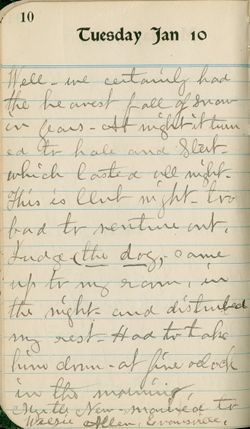 10
Tuesday Jan 10
Well - we certainly had
the heavest fall of snow
in years - At night it turn
ed to hale and Sleet -
which lasted all night -
This is Club night - too
bad to venture out.
Judge (the dog) - came
up to my room, in
the night - and disturbed
my rest - Had to take
him down - at five oclock
in the morning
New - married to
Allen,